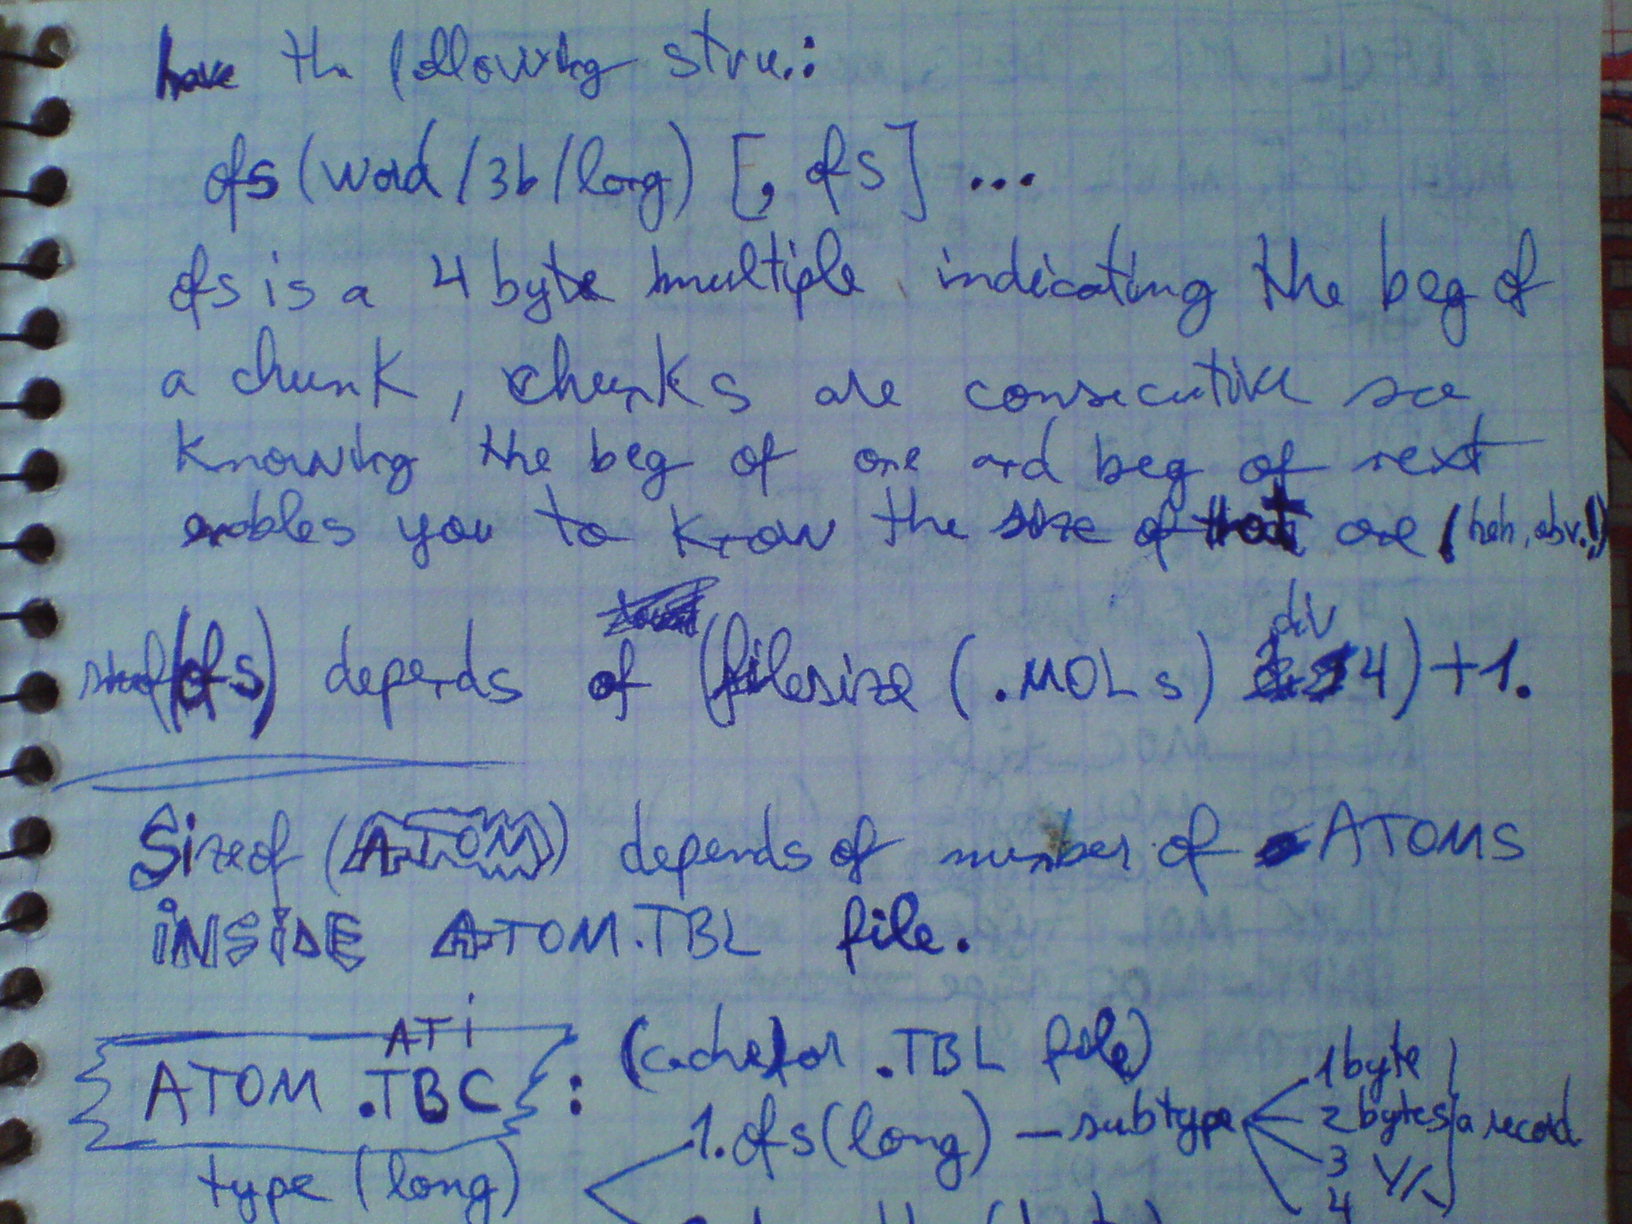 have the following stru.:
ofs (word / 3b / long) [, ofs] ...
ofs is a 4 byte multiple indicating the beg of
a chunk, chunks are consecutive so
knowing the beg of one and beg of next
enables you to know the size of that one (heh, obv.!)
sizeof(ofs) depends of (filesize (.MOLs) div 4) + 1.
Sizeof (ATOM) depends of number of ATOMS
INSIDE ATOM.TBL file.
ATI
ATOM .TBC : (cache for .TBL file)
type (long)
1. ofs (long) — subtype
1 byte
2 bytes
3
4
a record